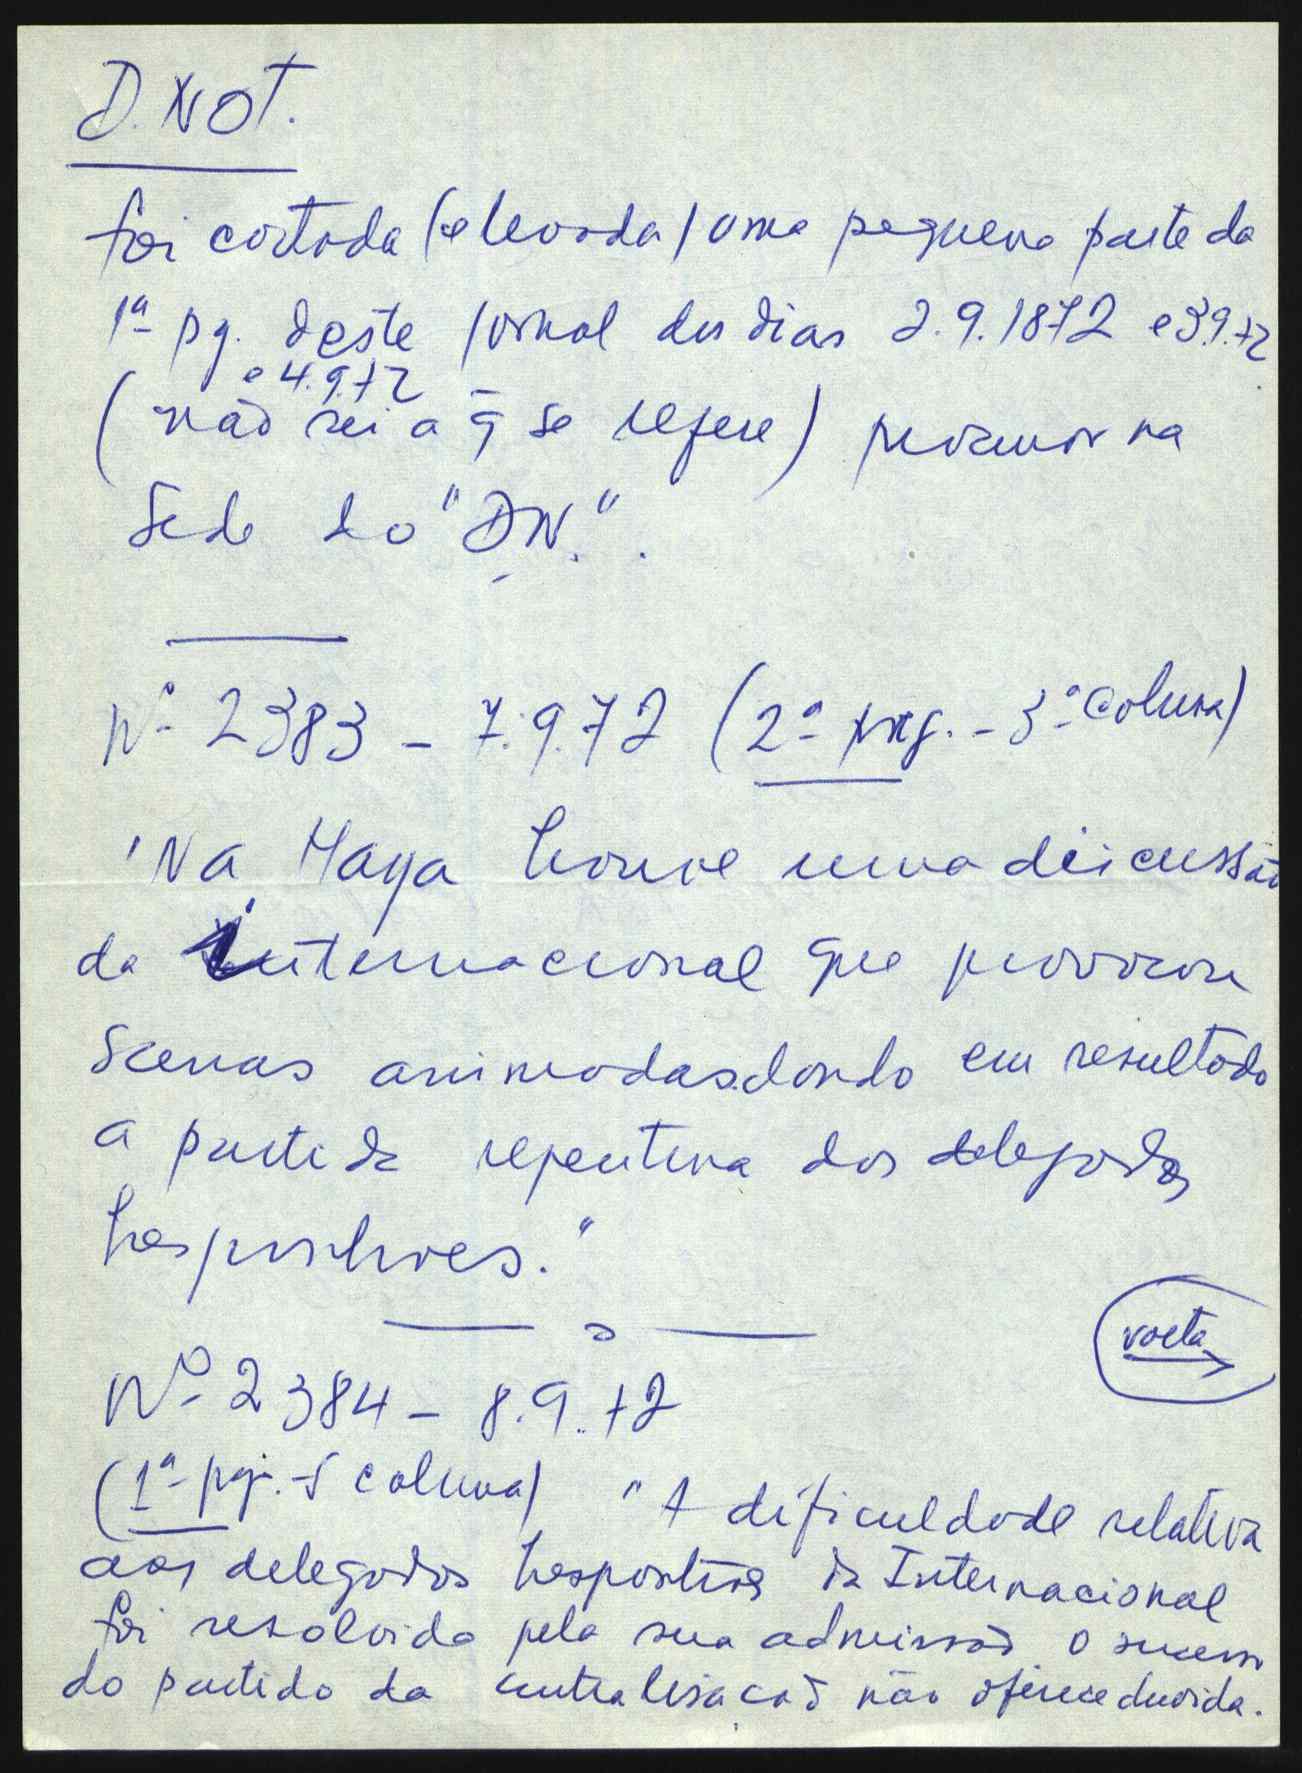 D. NOT.
foi cortada (e levada) uma pequena parte da
1ª pg. deste jornal dos dias 2.9.1872 e 3.9.72
e 4.9.72
(não sei a q̄ se refere) procurar na
Sede do "DN.".
Nº 2383 - 7.9.72 (2ª pag. - 3ª coluna)
"Na Haya houve uma discussão
da internacional que provocou
scenas animadas dando em resultado
a partida repentina dos delegados
hespanhoes."
volta
Nº 2384 - 8.9.72
(1ª pg. - 5 coluna) "A dificuldade relativa
aos delegados da Internacional
foi resolvida pela sua admissão. O sucesso
do partido da centralisação não oferece duvida.